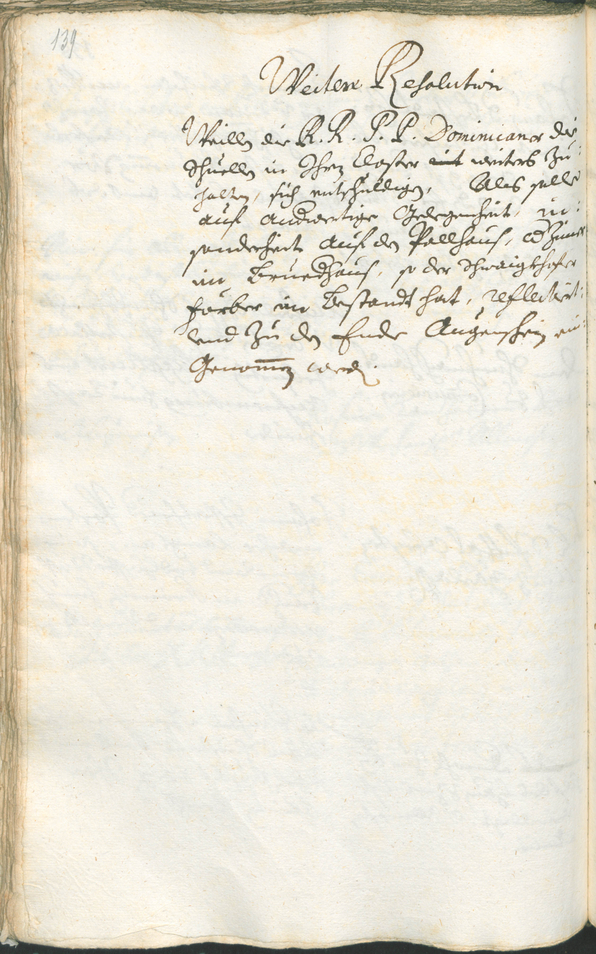 139
Weitere Resolution
Weillen die R. R. P. P. Dominicaner die
Schuellen in Ihren Closter nit weiters zu
halten, sich entschuldigen, Als solle
auf anderwertige Gelegenheit, in-
sonderheit auf das Pallhaus, od Zimer
im Bruedhaus, so der Schwaigkhofer
färber im Bestandt hat, reflectiert
und zu den Ende Augenschein ein
Genommen werden.